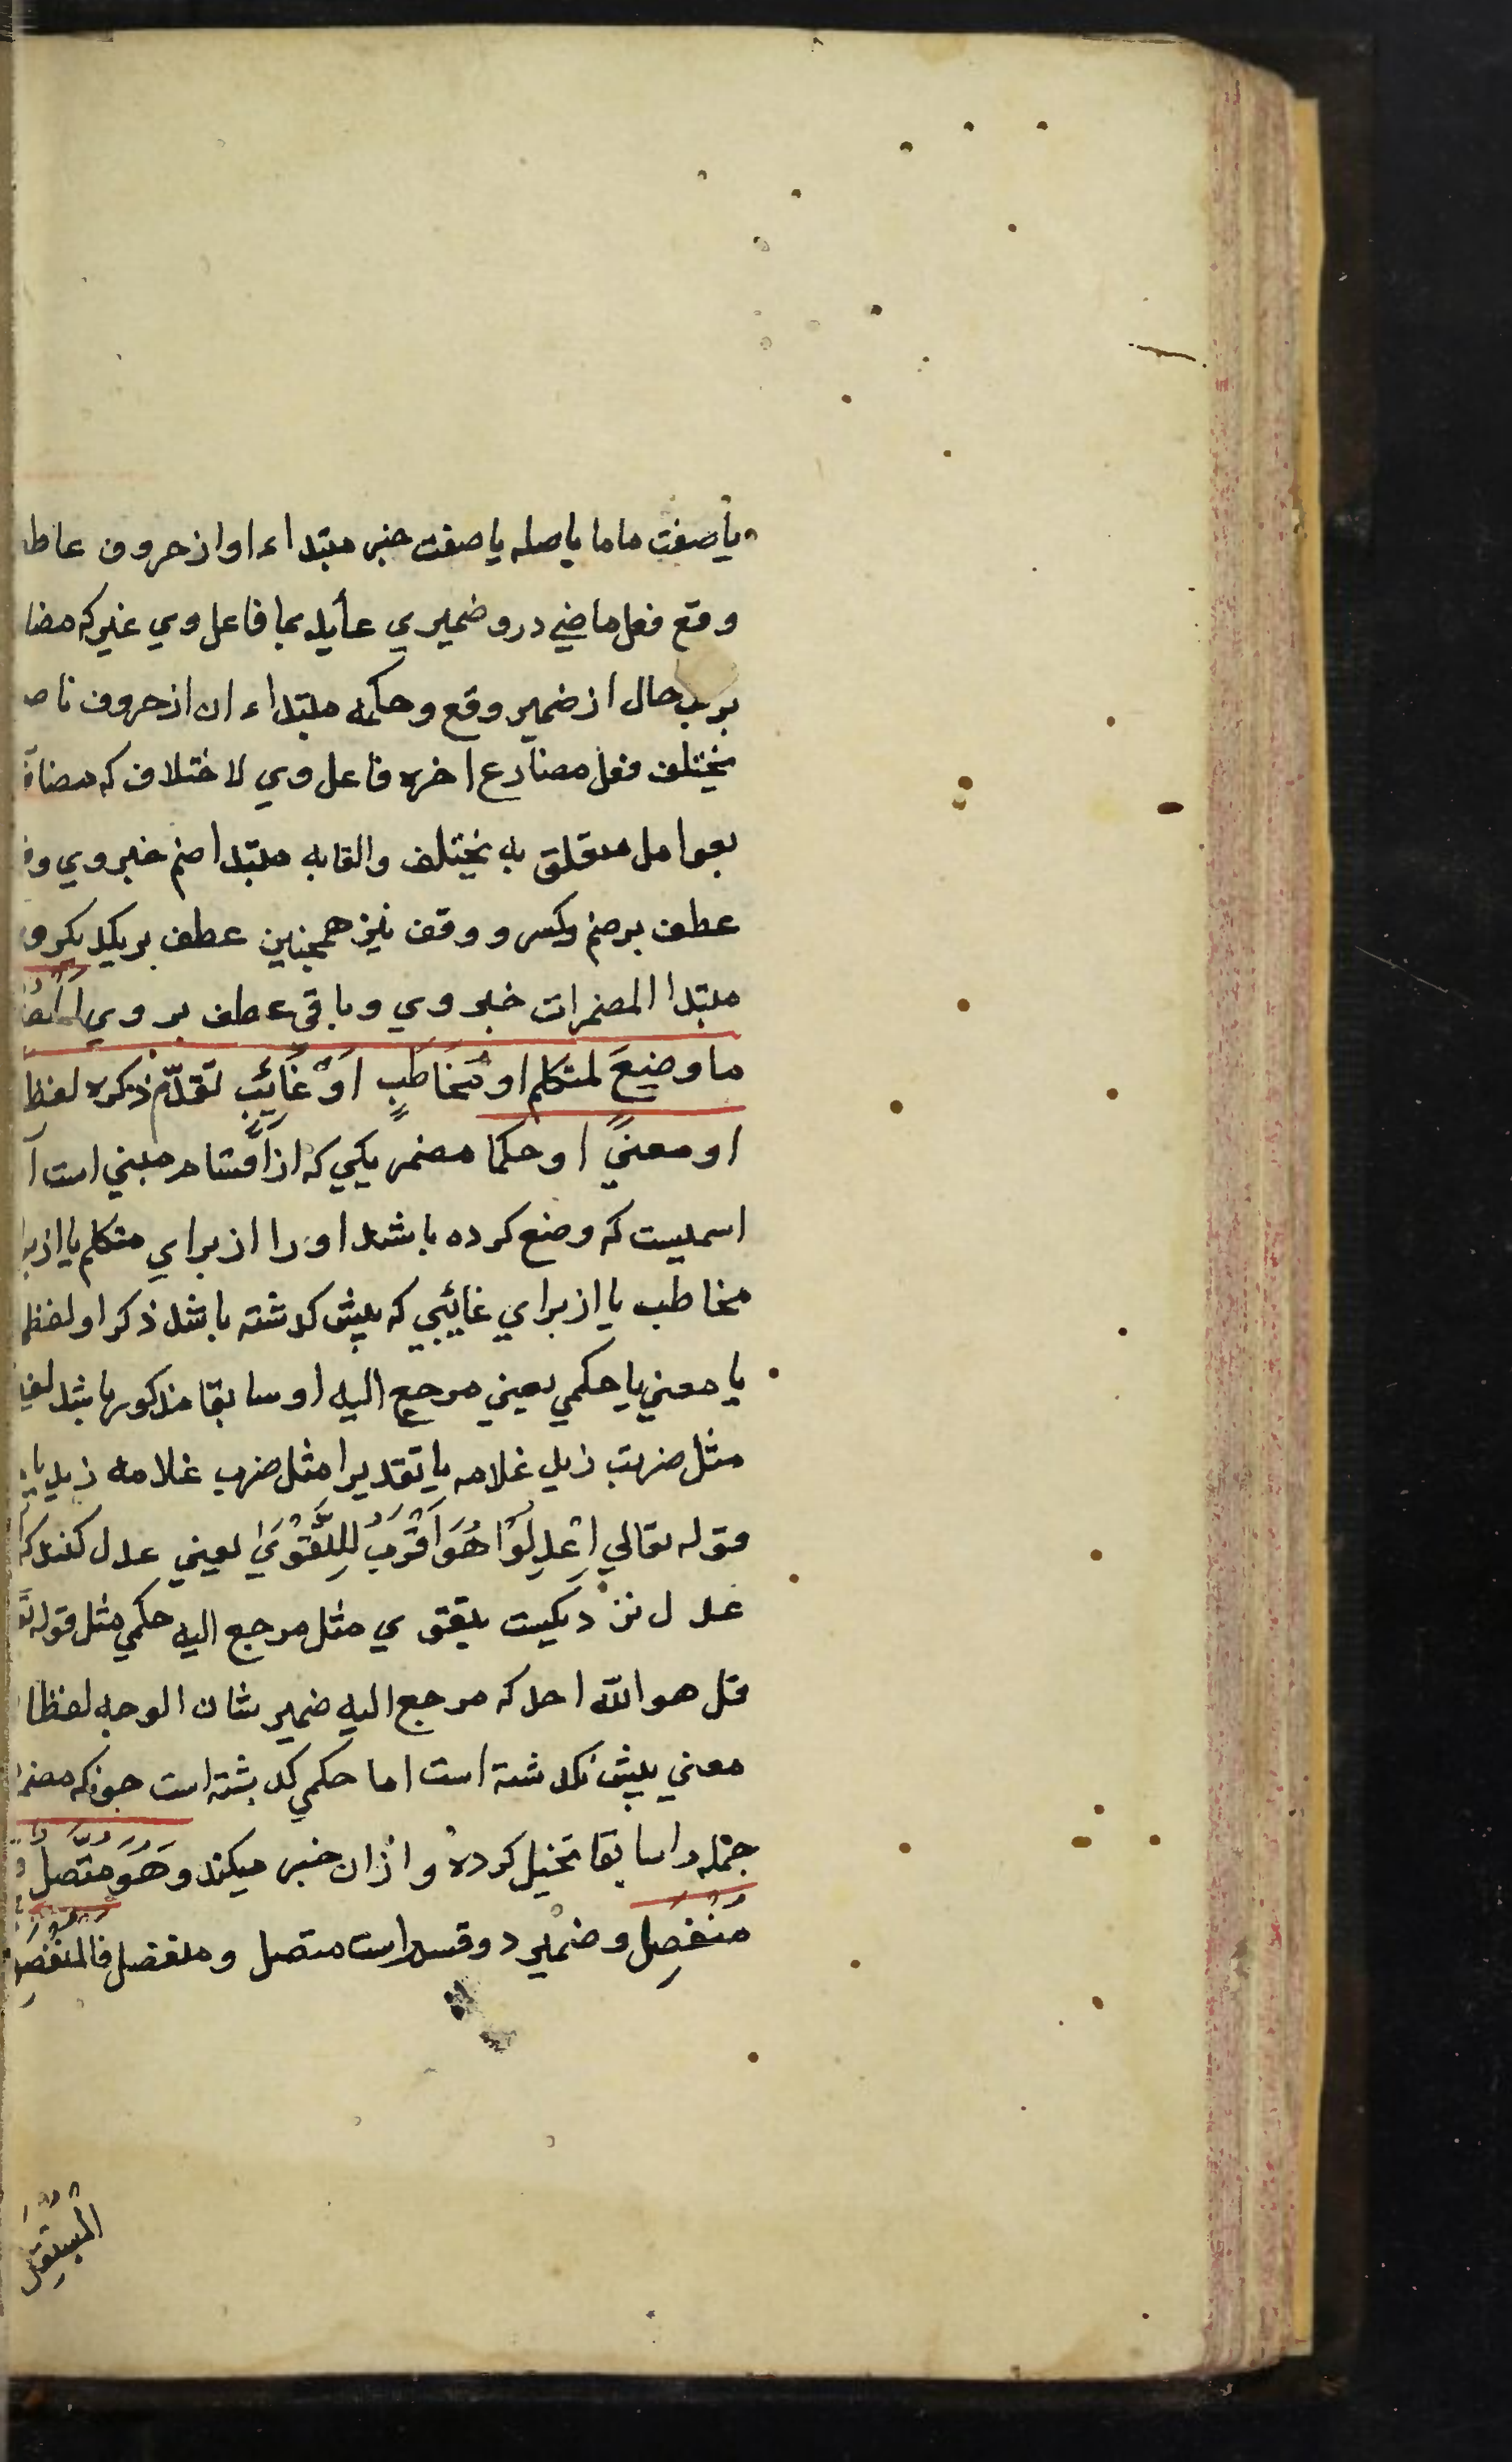 یا صفت ماما یا صله یا صفت خبر مبتداء او از حروف عاطـ
وقع فعل ماضي درو ضمیري عاید بما فاعل وي غیر که مضا
حال از ضمیر وقع وحکمه مبتداء ان از حروف نا صـ
یختلف فعل مضارع اخره فاعل وي لاختلاف که مضاف
بعوامل متعلق به یختلف والقابه مبتدا ضم خبر وي و
عطف بر ضم وکسر و وقف نیز همچنین عطف بر یکدیکر و
مبتدا المضمرات خبر وي وباقي عطف بر وي
ما وضِعَ لمتکلم او مُخَاطَبٍ اَوْ غَائِبٍ تقدّم ذکره لفظا
او معنیً او حکما مضمر یکي که از اقسام مبني است آ
اسمیست که وضع کرده باشد اورا از براي متکلم یا از برا
مخاطب یا از براي غائبي که پیش کدشته باشد ذکر او لفظي
یا معني یا حکمي یعني مرجع الیه او سابقا مذکور باشد لفظ
مثل ضربت زید غلامه یا تقدیرا مثل ضرب غلامه زید یا
قوله تعالي اِعْدِلُوْا هُوَ اَقْرَبُ لِلتَّقْوَيٰ یعني عدل کنید که
عدل نزدیکیست بتقوي مثل مرجع الیه حکمي مثل قوله تع
قل هو الله احد که مرجع الیه ضمیر شان الوجه لفظا
معني پیش نکدشته است اما حکمي کدشته است جونکه مضمر
جمله را سابقا تخیل کرده واز ان خبر میکند وَهُوَ مُتَّصِلٌ
مُنْفَصِل وضمیر دو قسم است متصل ومنفصل فالمُنْفَصِل
المُسْتَقِلُ